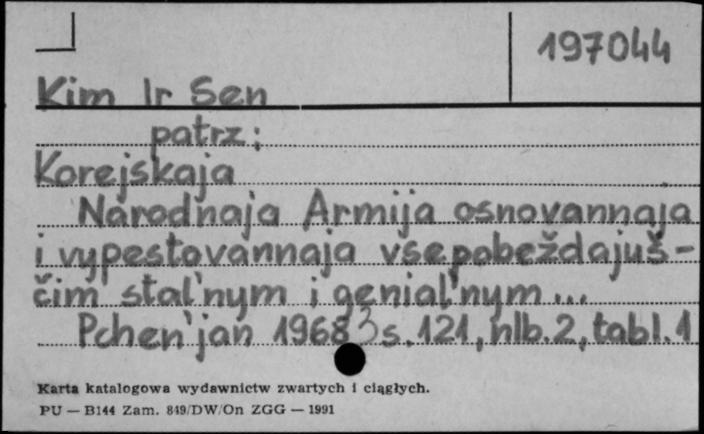 197044
Kim Ir Sen
patrz:
Korejskaja
Narodnaja Armija osnovannaja
i vypestovannaja vsepobeždajuš-
čim stal'nym i genial'nym...
Pchen'jan 1968 s. 121, nlb. 2, tabl. 1
Karta katalogowa wydawnictw zwartych i ciągłych.
PU — B144 Zam. 849/DW/On ZGG — 1991